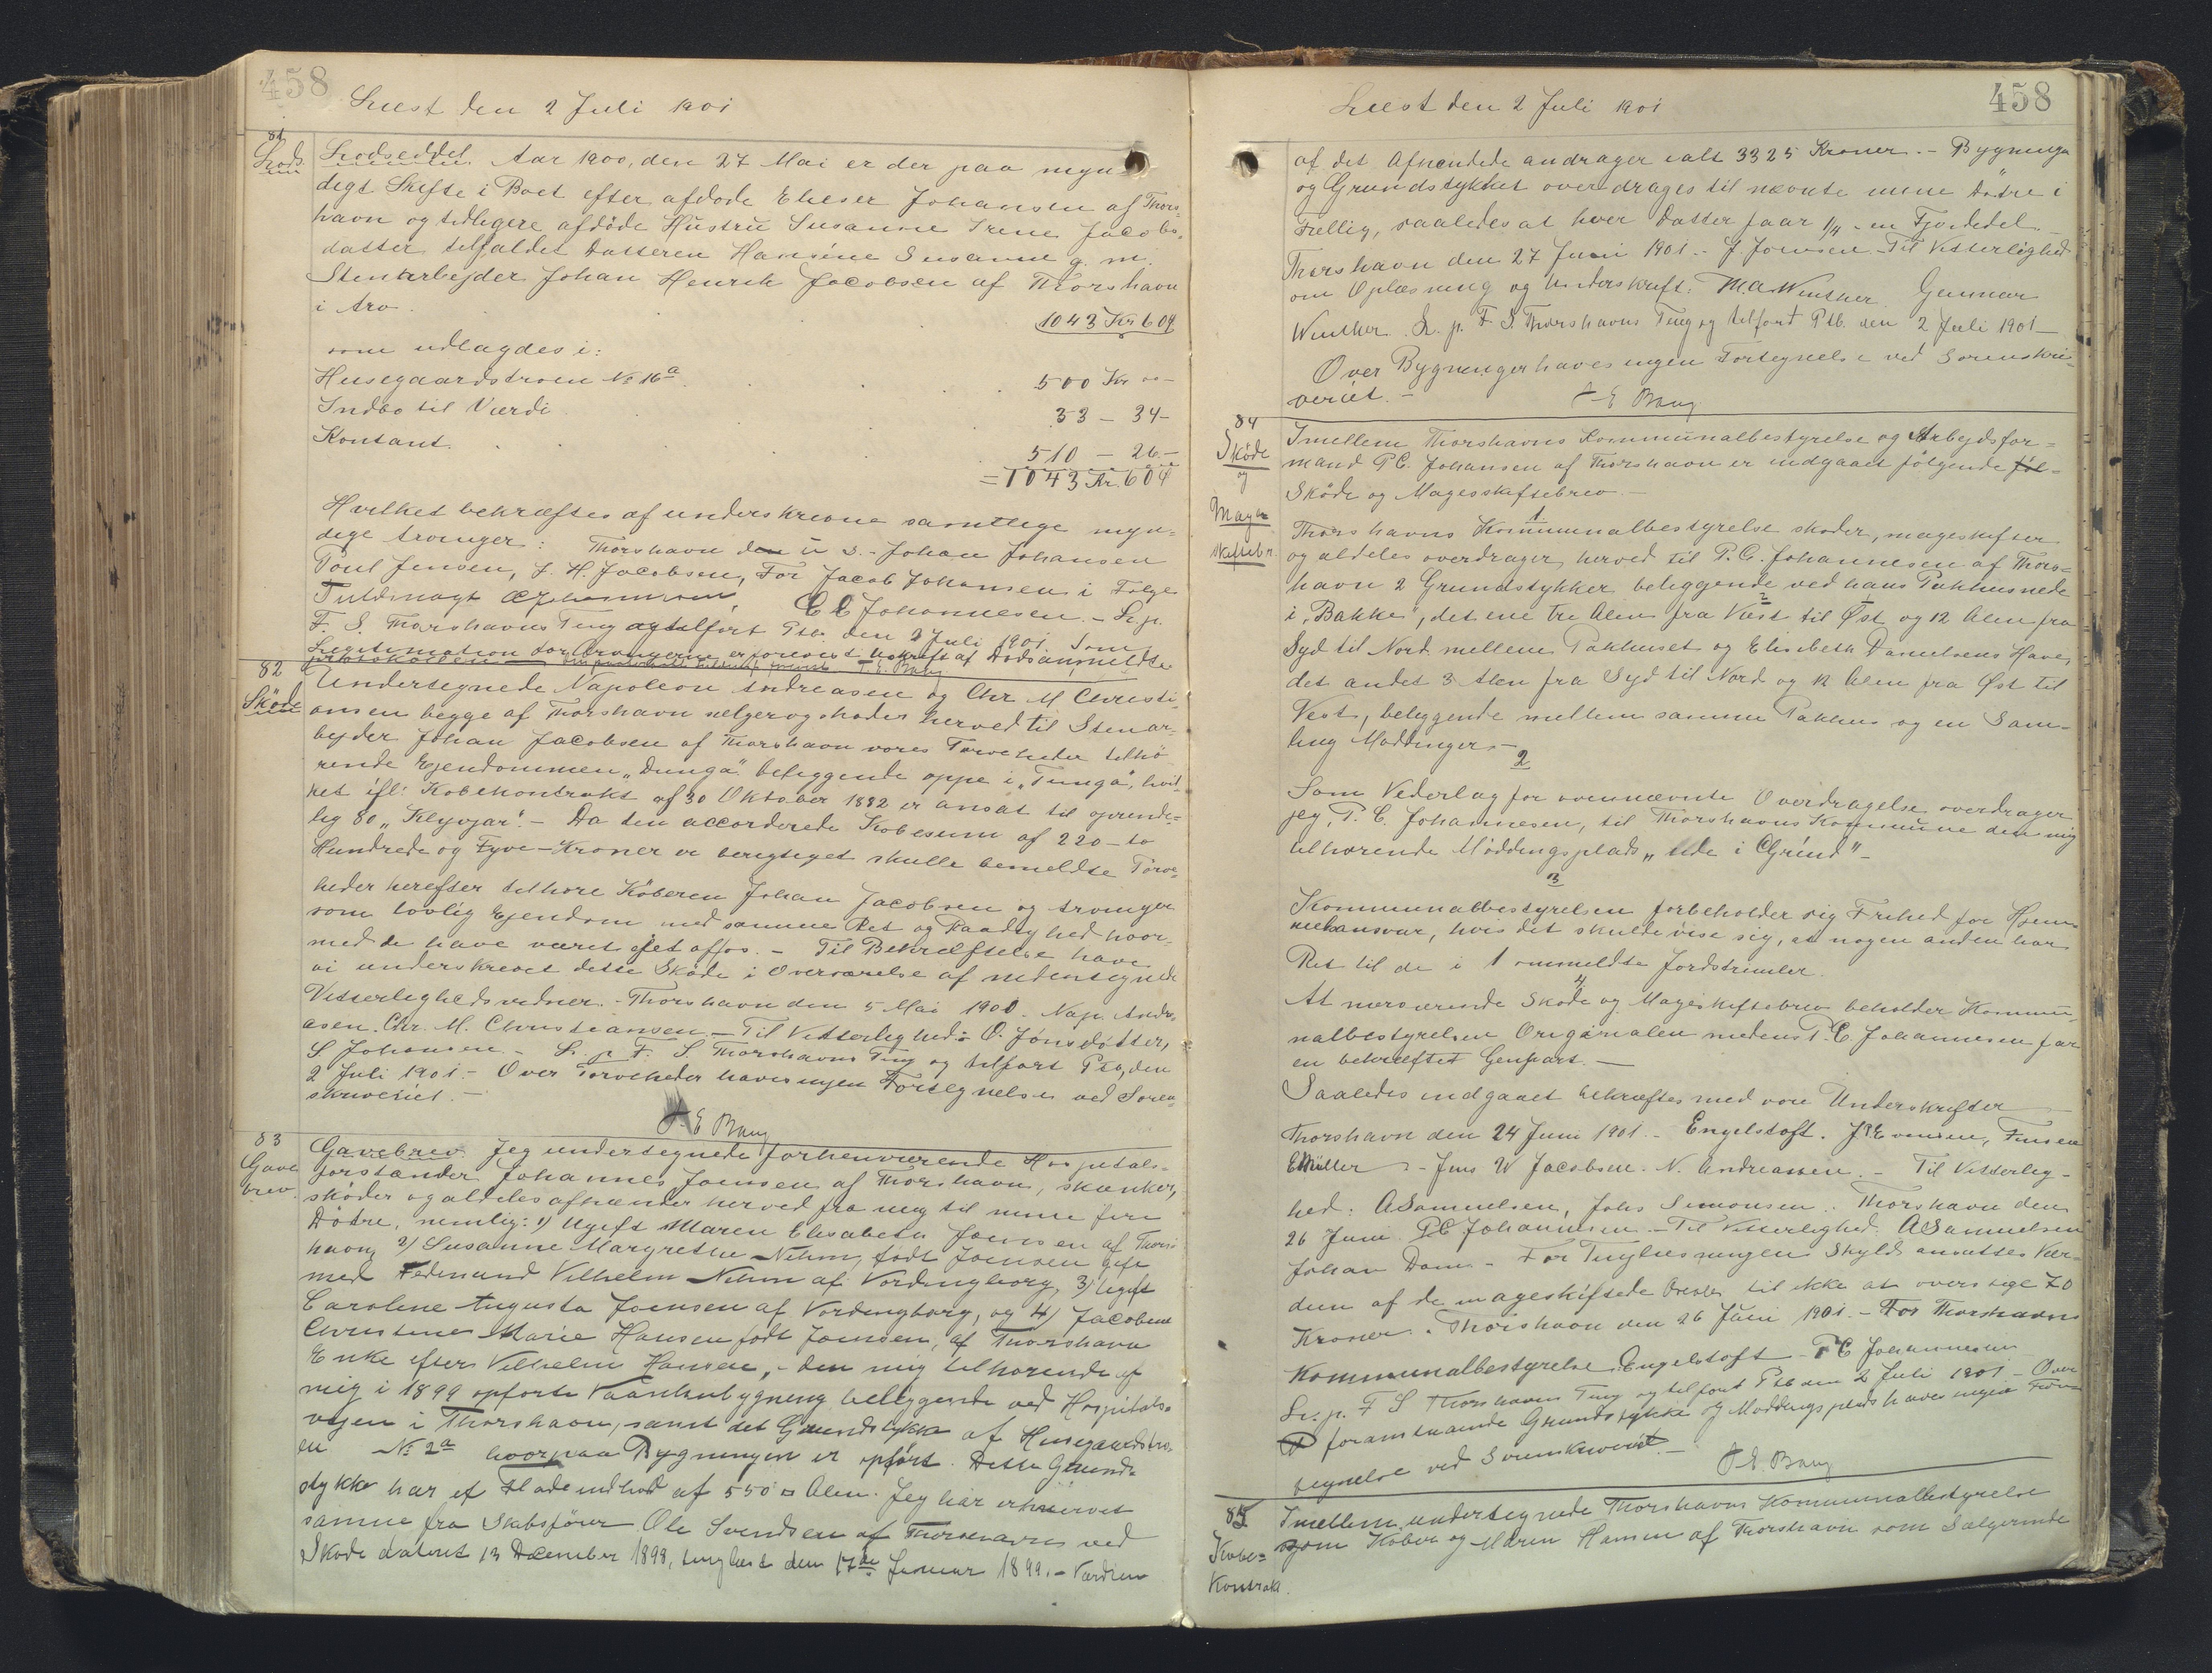 458
Læst den 2 Juli 1901
81
Lods-
Lodseddel. Aar 1900, den 27 Mai er der paa myn-
digt Skifte i Boet efter afdøde Elieser Johansen af Thors-
havn og tidligere afdøde Hustru Susanne Irene Jacobs-
datter tilfaldet Datteren Hansine Susanne g. m.
Stenarbejder Johan Henrik Jacobsen af Thorshavn
i Arv. 1043 Kr 60 Ø
som udlagdes i:
Husegaardstroen № 16a 500 Kr 00 -
Indbo til Værdi 33 - 34 -
Kontant. 510 - 26 -
= 1043 Kr. 60 Ø
Hvilket bekræftes af underskrevne samtlige myn-
dige Arvinger: Thorshavn den u s. - Johan Johansen
Poul Jensen, J. H. Jacobsen, For Jacob Johansen i Følge
Fuldmagt CC Johannesen. - L. p.
F. S. Thorshavns Ting og tilført Ptb. den 2 Juli 1901. Som
Legitimation for Arvingerne er forevist Udskrift af Dødsanmeldse
protokollen J. E. Bang
82
Skøde
Undertegnede Napoleon Andreasen og Chr M Christi-
ansen begge af Thorshavn sælger og skøder herved til Stenar-
bejder Johan Jacobsen af Thorshavn vores Tørveheder tilhø-
rende Ejendommen "Dunga" beliggende oppe i "Tunga", hvil-
ket ifl. Købekontrakt af 30 Oktober 1882 er ansat til oprinde-
lig 80 "Klyvjar". - Da den accorderede Købesum af 220 - to
Hundrede og Tyve - Kroner er berigtiget skulle bemeldte Tørve-
heder herefter tilhøre Køberen Johan Jacobsen og Arvinger
som lovlig Ejendom med samme Ret og Raadighed hvor-
med de have været ejet af os. - Til Bekræftelse have
vi underskrevet dette Skøde i Overværelse af nedentegnede
Vitterlighedsvidner. - Thorshavn den 5 Mai 1900. Nap. Andre-
asen. Chr. M. Christiansen - Til Vitterlighed: O. Jónsdótter,
S Johansen. - L. p. F. S. Thorshavns Ting og tilført Ptb, den
2 Juli 1901. - Over Tørveheder haves ingen Fortegnelse ved Soren-
skriveriet. -
J. E Bang
83
Gave
brev.
Gavebrev. Jeg undertegnede forhenværende Hospitals-
forstander Johannes Joensen af Thorshavn, skænker,
skøder og aldeles afhænder herved fra mig til mine fire
Døtre, nemlig: 1) Ugift Maren Elisabeth Joensen af Thors-
havn, 2) Susanne Margrethe Nehm, født Joensen gift
med Ferdinand Vilhelm Nehm af Vordingborg, 3) Ugift
Caroline Augusta Joensen af Vordingborg, og 4) Jacobine
Christine Marie Hansen født Joensen, af Thorshavn
Enke efter Vilhelm Hansen, - den mig tilhørende af
mig i 1899 opførte Vaaningsbygning beliggende ved Hospitals-
vejen i Thorshavn, samt det Grundstykke af Husegaardstro-
en № 2a hvorpaa Bygningen er opført. Dette Grund-
stykke har et Fladeindhold af 550 □ Alen. Jeg har erhvervet
samme fra Skibsfører Ole Svendsen af Thorshavn ved
Skøde dateret 13 December 1898, tinglæst den 17de Januar 1899. - Værdien
Læst den 2 Juli 1901
458
af det Afhændede andrager ialt 3325 Kroner. - Bygningen
og Grundstykket overdrages til nævnte mine Døtre i
Fællig, saaledes at hver Datter faar 1/4 - en Fjerdedel. -
Thorshavn den 27 Juni 1901. - J Joensen - Til Vitterlighed
om Oplæsning og Underskrift: M.A. Winther. Gunnar
Winther. L. p. F. S. Thorshavns Ting og tilført Ptb. den 2 Juli 1901 -
Over Bygninger haves ingen Fortegnelse ved Sorenskri-
veriet. - J E Bang
84
Skøde
og
Mage-
skiftebr.
Imellem Thorshavns Kommunalbestyrelse og Arbejdsfor-
mand P.C. Johansen af Thorshavn er indgaaet følgende føl-
Skøde og Mageskiftebrev. -
1
Thorshavns Kommunalbestyrelse skøder, mageskifter
og aldeles overdrager herved til P. C. Johannesen af Thors-
havn 2 Grundstykker beliggende ved hans Pakhus nede
i "Bakke", det ene tre Alen fra Vest til Øst og 12 Alen fra
Syd til Nord mellem Pakhuset og Elisabeth Danielsens Have,
det andet 3 Alen fra Syd til Nord og 12 Alen fra Øst til
Vest, beliggende mellem samme Pakhus og en Sam-
ling Møddinger. -
2
Som Vederlag for ovennævnte Overdragelse overdrager
jeg, P. C. Johannesen, til Thorshavns Kommune den mig
tilhørende Møddingsplads "ude i Grind" -
3
Kommunalbestyrelsen forbeholder sig Frihed for Hjem-
melsansvar, hvis det skulde vise sig, at nogen anden har
Ret til de i 1 ommeldte Jordstrimler.
4
At nærværende Skøde og Mageskiftebrev beholder Kommu-
nalbestyrelsen Originalen medens P. C. Johannesen faar
en bekræftet Genpart. -
Saaledes indgaaet bekræftes med vore Underskrifter
Thorshavn den 24 Juni 1901. - Engelstoft. Finsen
E Müller - Jens W Jacobsen. N. Andreassen. - Til Vitterlig-
hed: A Samuelsen, Johs Simonsen. Thorshavn den
26 Juni. P C Johannesen. - Til Vitterlighed. A Samuelsen
Johan Dam - For Tinglæsningens Skyld ansættes Vær-
dien af de mageskiftede til ikke at overstige 70
Kroner. Thorshavn den 26 Juni 1901. - For Thorshavns
Kommunalbestyrelse Engelstoft - P C Johannesen
L. p. F S Thorshavns Ting og tilført Ptb den 2 Juli 1901 - Over
foranstaaende Grundstykke og Møddingsplads haves ingen For-
tegnelse ved Sorenskriveriet. - J. E. Bang
85
Købe-
Kontrakt.
Imellem undertegnede Thorshavns Kommunalbestyrelse
som Køber og Maren Hansen af Thorshavn som Sælgerinde